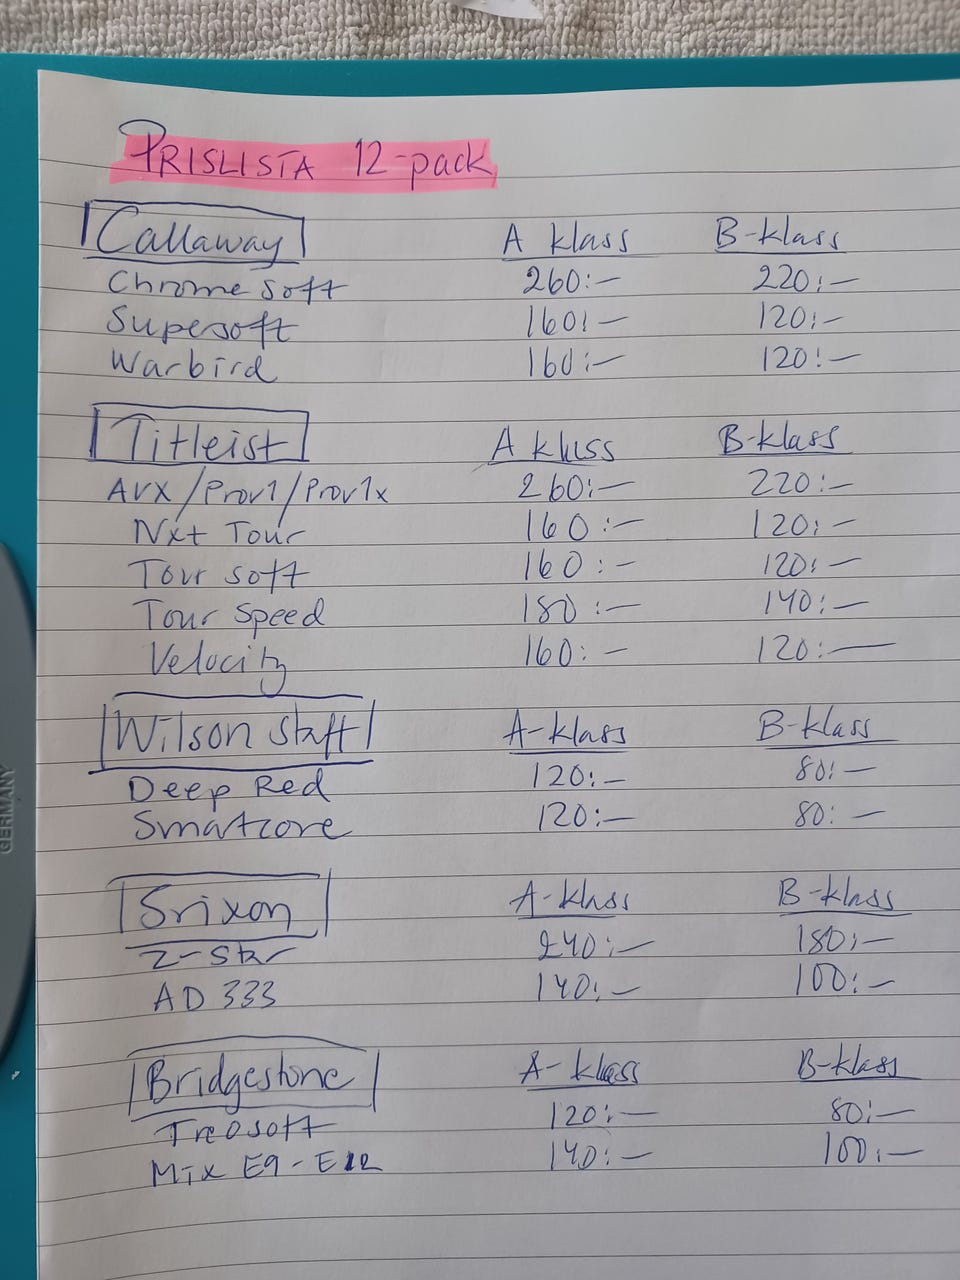 PRISLISTA 12-pack
Callaway A klass B-klass
Chrome soft 260:- 220:-
Supersoft 160:- 120:-
Warbird 160:- 120:-
Titleist A klass B-klass
AVX/Prov1/Prov1x 260:- 220:-
Nxt Tour 160:- 120:-
Tour soft 160:- 120:-
Tour Speed 180:- 140:-
Velocity 160:- 120:-
Wilson Staff A-klass B-klass
Deep Red 120:- 80:-
Smartcore 120:- 80:-
Srixon A-klass B-klass
Z-Star 240:- 180:-
AD 333 140:- 100:-
Bridgestone A-klass B-klass
Treosoft 120:- 80:-
Mix E9-E12 140:- 100:-
GERMANY